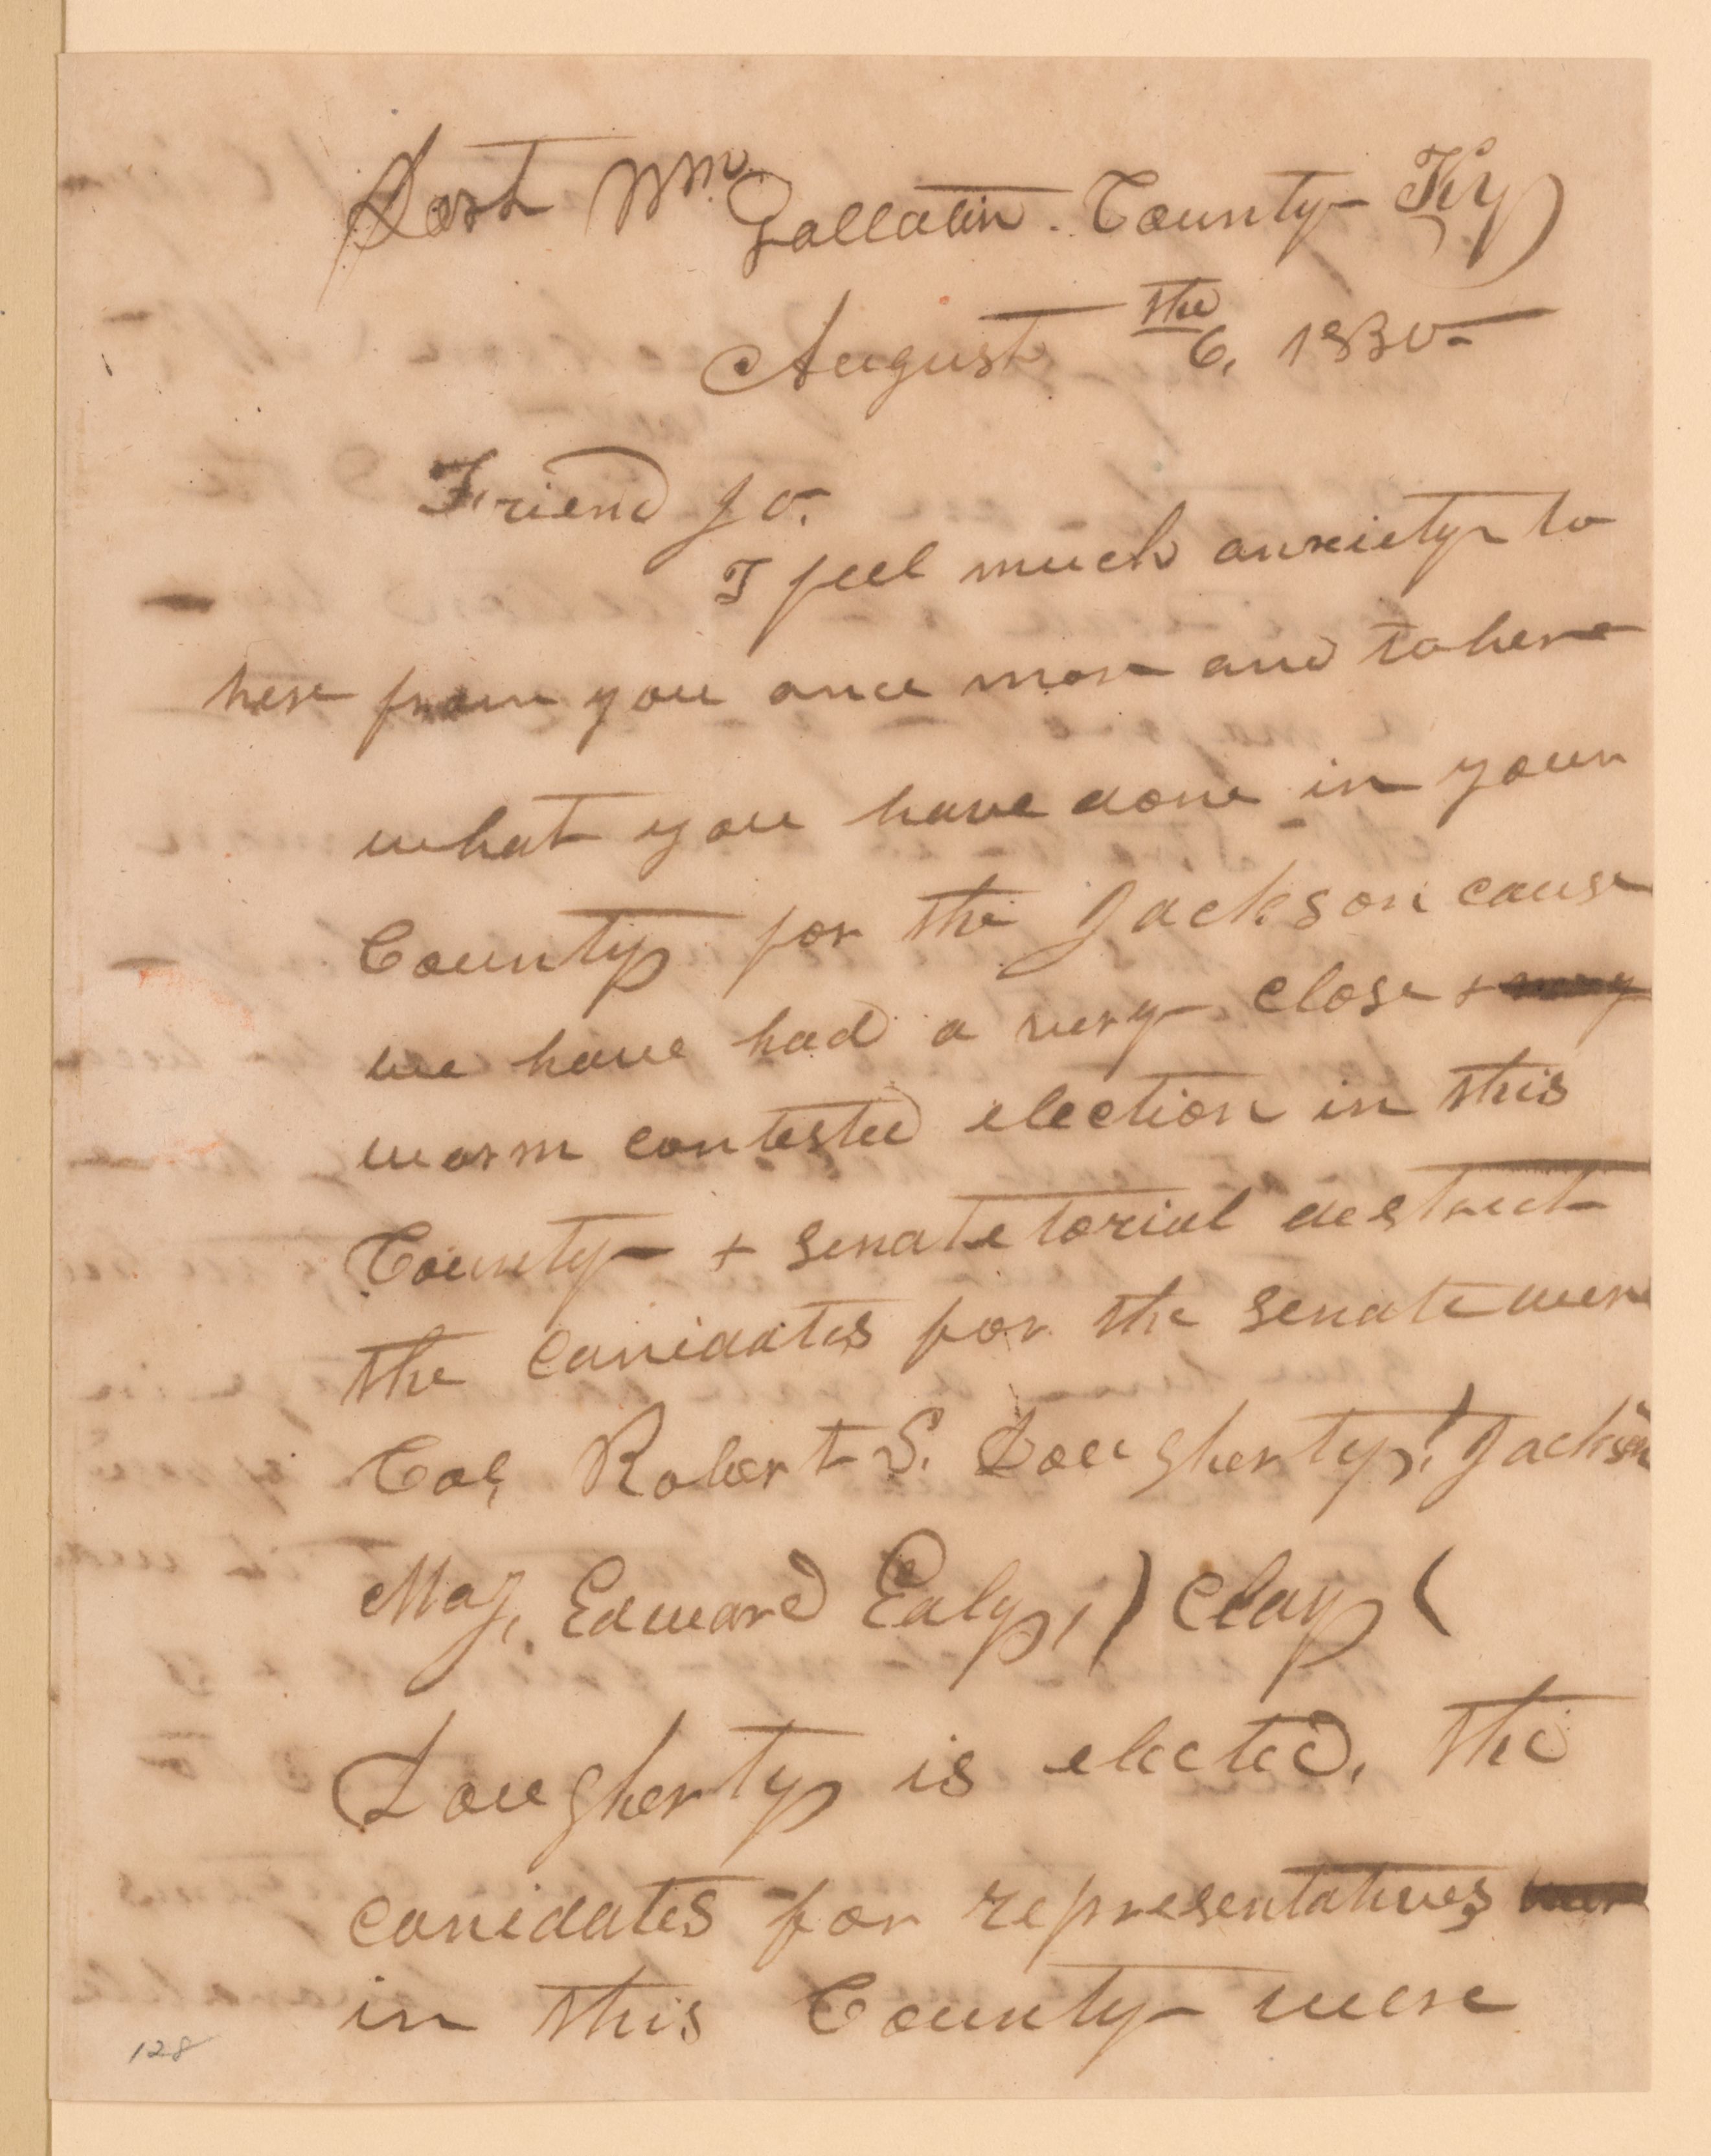 Port Wm. Gallatin. County Ky
August the 6, 1830-
Friend Jo.
I feel much anxiety to
here from you once more and to here
what you have done in your
County for the Jackson cause
we have had a very close +
warm contested election in this
County + senatetorial destrect
the canidates for the senate were
Col, Robert S. Dougherty, Jackson
Maj, Edward Ealy, ) Clay (
Dougherty is elected, the
canidates for representatives
in this County were
128